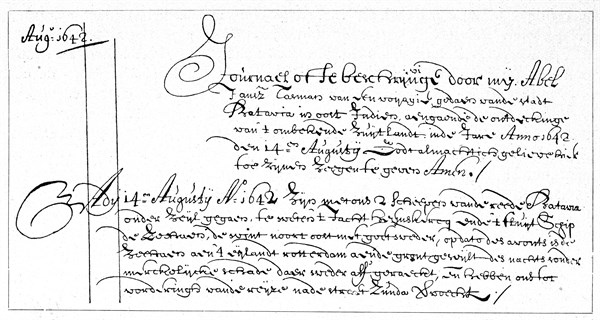 Aug.º 1642.
Journael ofte beschrijvinge door mij Abel
Jansz Tasman van een voijagie gedaen vande stadt
Batavia in oost Indien, aengaende de ontdeckinge
van 't onbekende Zuijtlandt, inde Jare Anno 1642
den 14en Augustij Godt almachtich gelieve hier
toe Zijnen Zeegen te geven Amen./
Ady 14en Augustij Aº 1642 Zijn met ons 2 scheepen vande reede Batavia
onder Zeijl gegaen, te weten 't Jacht Heemskercq ende 't fluijt Schip
de Zeehaen, de wint noort oost met goet weder, op dato des avonts is de
Zeehaen aen 't eijlandt rotterdam aende gront geweest des nachts sonder
merckelijcke schade daer weder aff geraeckt, en hebben ons tot
vorderingh vande reijze nade straet Zunda